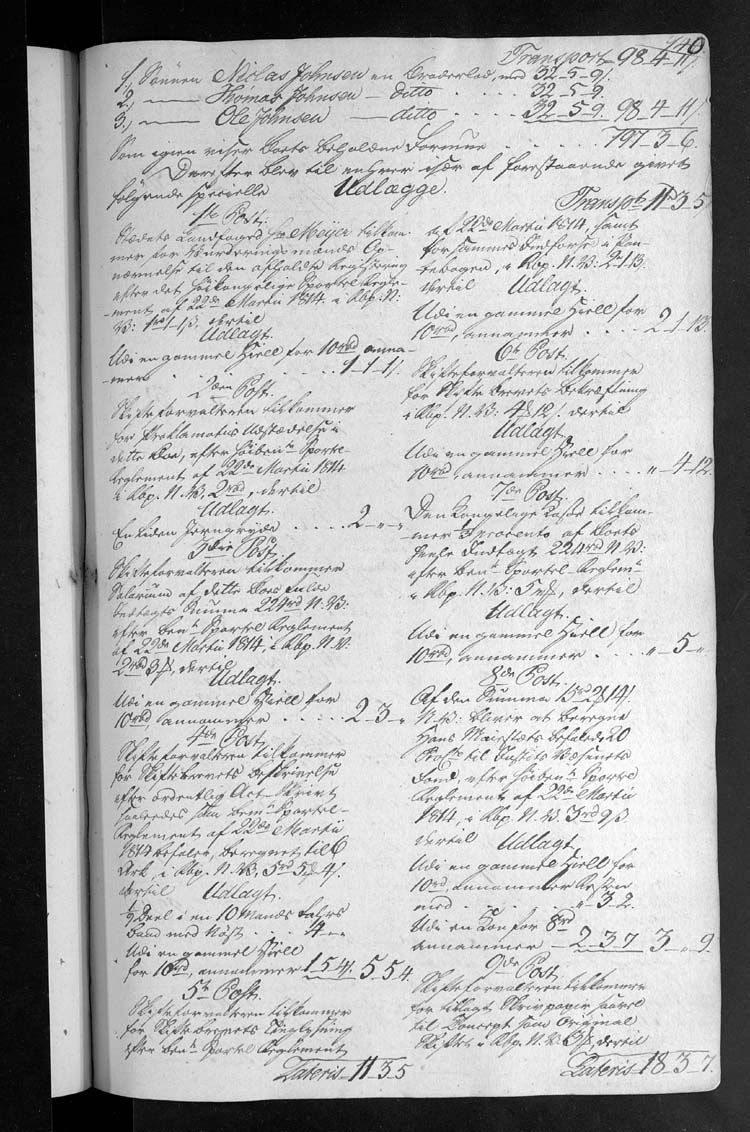 140.
Transport 98-4-11/.
1., Sønnen Niclas Johnsen en Broderlod, med 32-5-9/.
2., — Thomas Johnsen — ditto . . . . 32-5-9.
3., — Ole Johnsen — ditto . . . . 32-5-9. 98-4-11/.
Som igien viser Boets Beholdne Formue . . . . 797-3-6.
Derefter blev til enhver især af forestaaende giort
følgende specielle Udlægge.
1ste Post.
Stædets Landfoged Hr Meyer tilkom-
mer for Vurderingsmænds Op-
nævnelse til den afholdte Registering
efter det Høikongelige Sportel Regle-
ment af 22de Martii 1814 i Rbp. N:
V: 1-1/3, dertil
Udlagt.
Udi en gammel Hiell for 10rbd anna-
mer . . . . 1-1-1/.
2den Post.
Skifteforvalteren tilkommer
for Proklamatis Udstædelse i
dette Boe, efter Høiben: Sportel-
Reglement af 22de Martii 1814
i Rbp. N.V. 2rbd, dertil
Udlagt.
En liden Jerngryde . . . . 2-"-"
3die Post.
Skifteforvalteren tilkommer
Salarium af dette Boes fulde
Indtægts Summa 224rd N.V:
efter ben: Sportel Reglement
af 22de Martii 1814, i Rbp. N.V:
2rbd 3ß, dertil
Udlagt.
Udi en gammel Hiell for
10rbd, annammer . . . . 2-3-"
4de Post.
Skifteforvalteren tilkommer
for Skiftebrevets Beskrivelse
efter ordentlig Act-Skrivt
saaledes som ben: Sportel-
Reglement af 22de Martii
1814 befaler, beregnet til 6
Ark, i Rbp. N.V. 5rd 5ß 4/.
dertil Udlagt.
1/2 Deel i en 10 Mands
Baad med Nøst . . . 4-"-
Udi en gammel Hiell
for 10rd, annammer 1-5-4/. 5-5-4
5te Post.
Skifteforvalteren tilkommer
for Skiftebrevets Tinglysning
efter ben: Sportel Reglement
Lateris 11-3-5
Transpt 11-3-5
af 22de Martii 1814, samt
for sammes Indførsel i Pan-
tebogen, i Rbp. N.V: 2-1-13.
dertil Udlagt.
Udi en gammel Hiell for
10rbd, annammer . . . . 2-1-13.
6te Post.
Skifteforvalteren tilkommer
for Skifte Brevets Bekræftning
i Rbp. N.V: 4ß12/. dertil
Udlagt.
Udi en gammel Hiell for
10rd, annammer . . . . "-4-12.
7de Post.
Den Kongelige Casse tilkom-
mer 1/4 procento af Boets
heele Indtægt 224rd N.V:
efter ben: Sportel-Reglem:
i Rbp. N.V: 5ß, dertil
Udlagt.
Udi en gammel Hiell for
10rbd, annammer . . . "-5-".
8de Post.
Af den Summa 15rd 2ß14/.
N.V: bliver at beregne
Hans Maiestæts befalede 20
Procto til Justits Væsenets
Fond, efter Høiben: Sportel
Reglement af 22de Martii
1814, i Rbp. N.V. 3rd 9/3
dertil Udlagt
Udi en gammel Hiell for
10rd, annammer Resten
med . . . . "-3-2.
Udi en Koe for 8rd
annammer — 2-3-7 3-"-9.
9de Post.
Skifteforvalteren tilkommer
for tillagt Skrivpapir saavel
til Concept som Original
Skiftet, i Rbp. N.V. 3ß, dertil
Lateris 18-3-7.